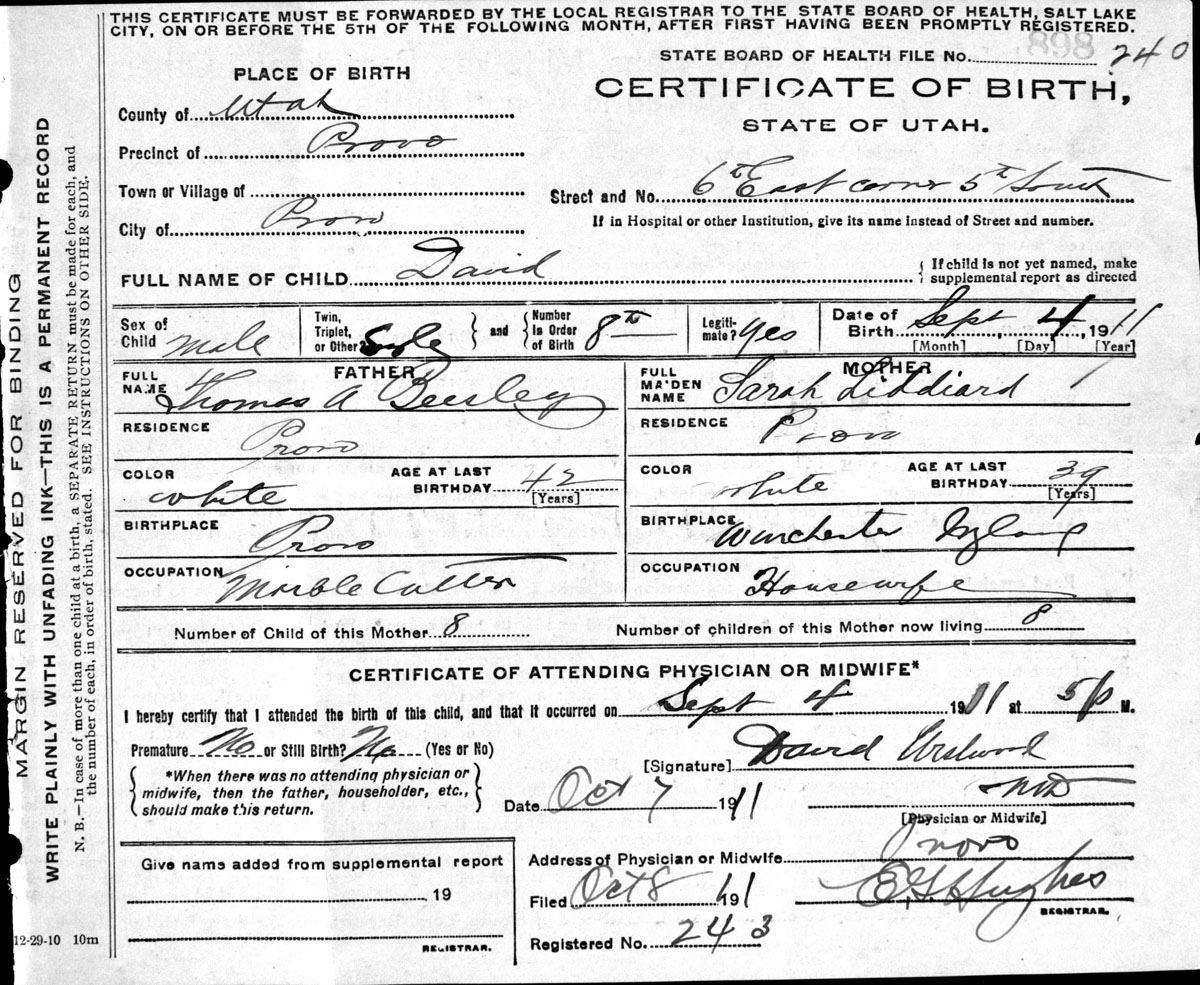 THIS CERTIFICATE MUST BE FORWARDED BY THE LOCAL REGISTRAR TO THE STATE BOARD OF HEALTH, SALT LAKE
CITY, ON OR BEFORE THE 5TH OF THE FOLLOWING MONTH, AFTER FIRST HAVING BEEN PROMPTLY REGISTERED.
STATE BOARD OF HEALTH FILE No. 898 240
PLACE OF BIRTH
CERTIFICATE OF BIRTH,
STATE OF UTAH.
County of Utah
Precinct of Provo
Town or Village of
City of Provo
Street and No. 6th East corner 5th South
If in Hospital or other Institution, give its name instead of Street and number.
FULL NAME OF CHILD David
If child is not yet named, make
supplemental report as directed
Sex of Child male
Twin, Triplet, or Other?
and
Number in Order of Birth 8th
Legiti-mate? Yes
Date of Birth Sept 4, 1911
[Month] [Day] [Year]
FATHER
FULL NAME Thomas A Beesley
RESIDENCE Provo
COLOR white
AGE AT LAST BIRTHDAY 42
[Years]
BIRTHPLACE Provo
OCCUPATION Marble Cutter
MOTHER
FULL MAIDEN NAME Sarah Liddiard
RESIDENCE Provo
COLOR white
AGE AT LAST BIRTHDAY 39
[Years]
BIRTHPLACE Winchester England
OCCUPATION Housewife
Number of Child of this Mother 8
Number of children of this Mother now living 8
CERTIFICATE OF ATTENDING PHYSICIAN OR MIDWIFE*
I hereby certify that I attended the birth of this child, and that it occurred on Sept 4 1911 at 5 p M.
Premature No or Still Birth? No (Yes or No)
*When there was no attending physician or
midwife, then the father, householder, etc.,
should make this return.
[Signature] David Westwood
Date Oct 7 1911
MD
[Physician or Midwife]
Give name added from supplemental report
19
REGISTRAR.
Address of Physician or Midwife Provo
Filed Oct 8 1911
E. G. Hughes
REGISTRAR.
Registered No. 243
12-29-10 10m
MARGIN RESERVED FOR BINDING
WRITE PLAINLY WITH UNFADING INK—THIS IS A PERMANENT RECORD
N. B.—In case of more than one child at a birth, a SEPARATE RETURN must be made for each, and
the number of each, in order of birth, stated. SEE INSTRUCTIONS ON OTHER SIDE.